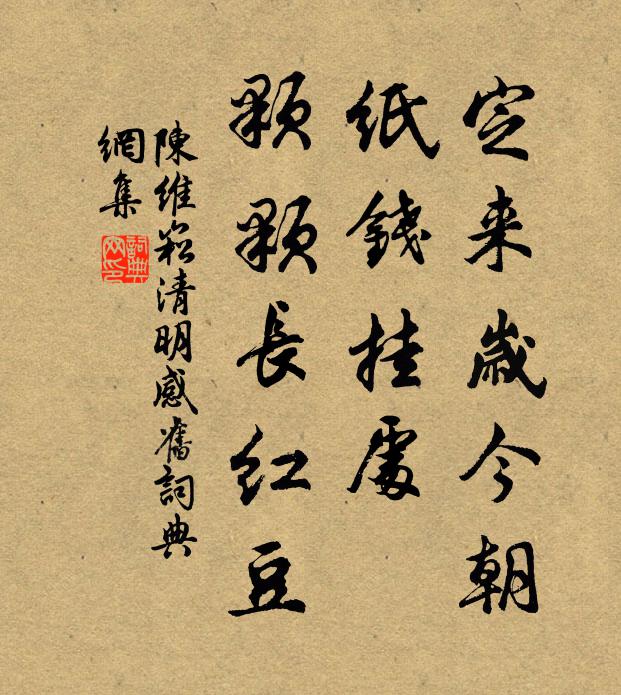 定来歲今朝
紙錢挂處
顆顆長紅豆
陳維崧清明感舊詞典
網集
詞典網印